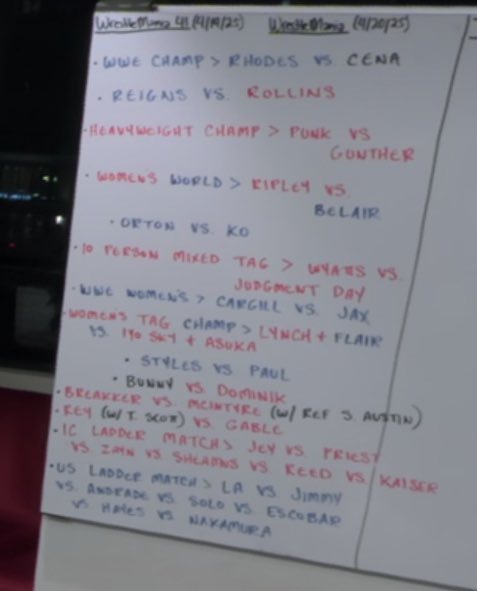 WrestleMania 41 (4/19/25) WrestleMania (4/20/25)
• WWE CHAMP > RHODES VS. CENA
• REIGNS VS. ROLLINS
• HEAVYWEIGHT CHAMP > PUNK VS
GUNTHER
• WOMENS WORLD > RIPLEY VS.
BELAIR
• ORTON VS. KO
• 10 PERSON MIXED TAG > WYATTS VS.
JUDGMENT DAY
• WWE WOMEN'S > CARGILL VS. JAX
• WOMEN'S TAG CHAMP > LYNCH + FLAIR
VS. IYO SKY + ASUKA
• STYLES VS PAUL
• BUNNY VS. DOMINIK
• BREAKKER VS. MCINTYRE (W/ REF S. AUSTIN)
• REY (W/ T. SCOTT) VS. GABLE
• IC LADDER MATCH > JEY VS. PRIEST
VS. ZAYN VS. SHEAMUS VS. REED VS. KAISER
• US LADDER MATCH > LA VS JIMMY
VS. ANDRADE VS. SOLO VS. ESCOBAR
VS. HAYES VS NAKAMURA